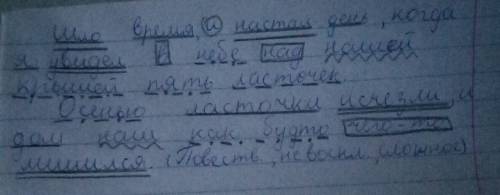 Шло время, а настал день, когда
я увидел в небе над нашей
крышей пять ласточек.
Осенью ласточки исчезли, и
дом наш как будто чего-то
лишился. (Повеств., невоскл., сложное)